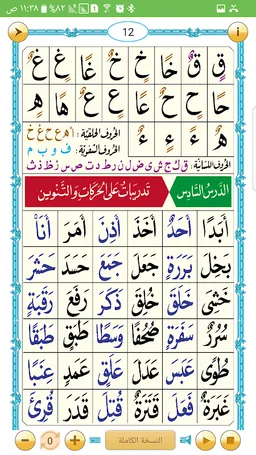 ١١:٣٨ ص
12
قٍ قٌ خًا خٍ خٌ غًا غٍ غٌ
حًا حٍ حٌ عًا عٍ عٌ هًا هٍ
هٌ ءً ءٍ ءٌ
الحُرُوفُ الحَلقِيَّة: أ هـ ع ح غ خ
الحُرُوفُ الشَّفَوِيَّة: ف و ب م
الحُرُوفُ اللِّسَانِيَّة: ق ك ج ش ي ض ل ن ر ط د ت ص س ز ظ ذ ث
الدَّرْسُ السَّادِس
تَدرِيبَاتٌ عَلَى الحَرَكَاتِ وَالتَّنْوِين
أَبَدًا أَحَدٌ أَخَذَ أَذِنَ أَمَرَ أَنَا
بَخِلَ بَرَرَةٍ جَعَلَ جَمَعَ حَسَدَ حَشَرَ
خَشِيَ خَلَقَ خُلِقَ ذَكَرَ رَفَعَ رَقَبَةٍ
سُرُرٌ سَفَرَةٍ صُحُفًا وَسَطًا طَبَقٍ طَبَقًا
طُوًى عَبَسَ عَدَلَ عَلَقٍ عَمَدٍ عِنَبًا
غَبَرَةٌ فَعَلَ قَتَرَةٌ قُتِلَ قَدَرَ قُرِئَ
0
النسخة الكاملة